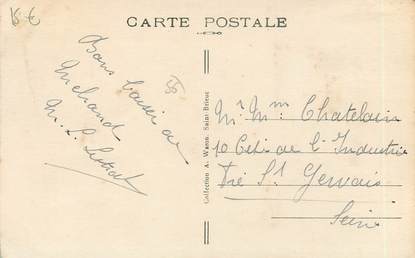 15 €
CARTE POSTALE
Bons baisers de
Méchand
M. L.
Collection A. Waron, Saint-Brieuc
Mr Mme Chatelain
10 Cité de l'Industrie
Pré St Gervais
Seine